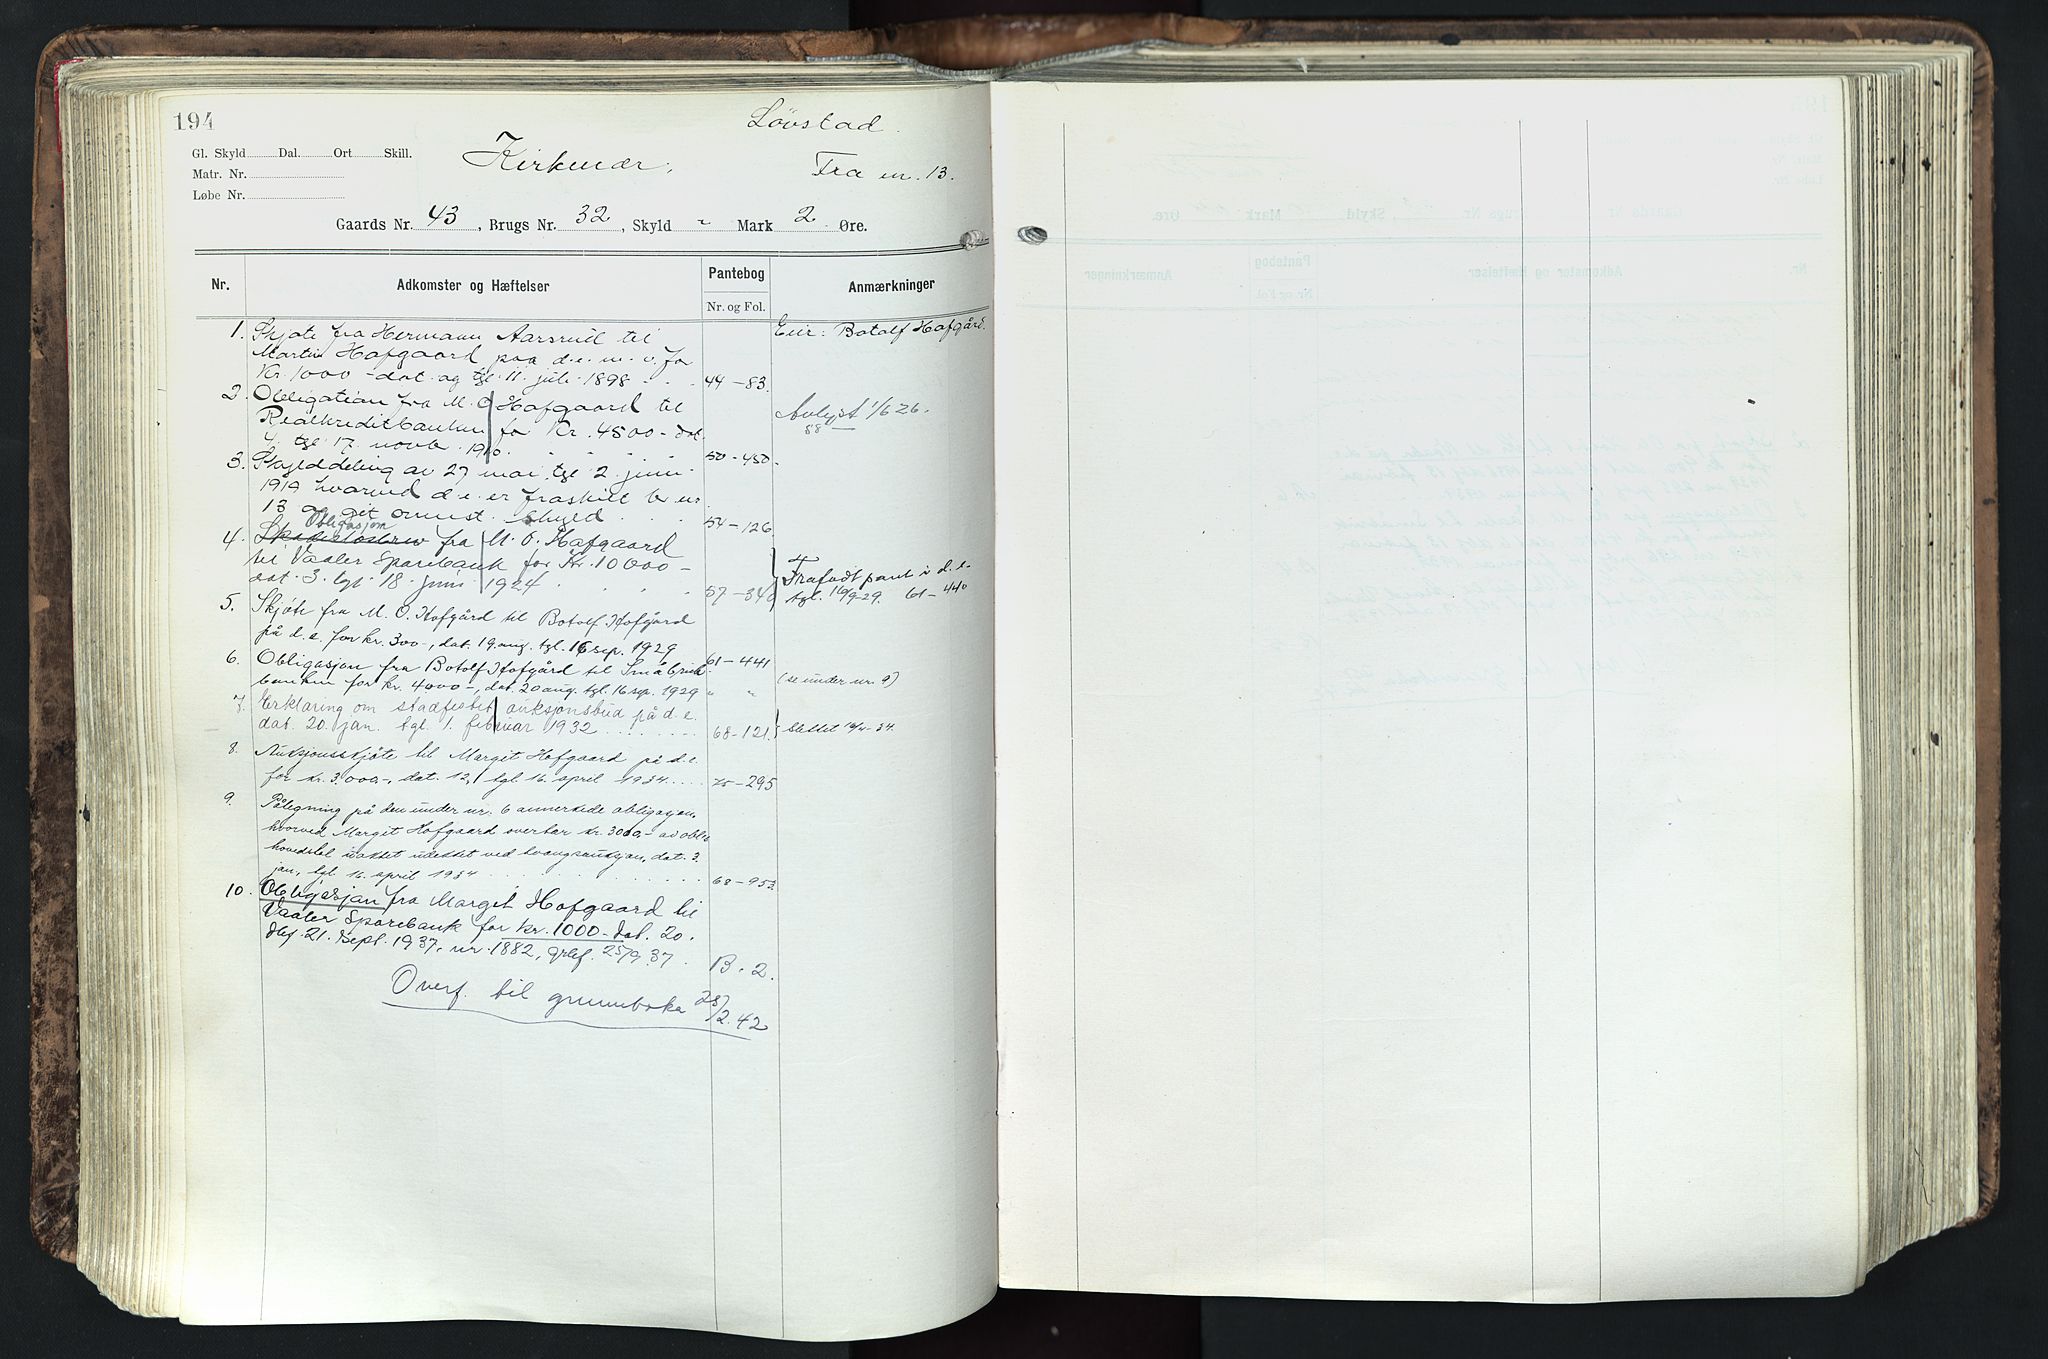 194
Løvstad.
Gl. Skyld Dal. Ort Skill.
Kirkenær.
Fra nr. 13.
Matr. Nr.
Løbe Nr.
Gaards Nr. 43, Brugs Nr. 32, Skyld " Mark 2 Øre.
Nr. Adkomster og Hæftelser Pantebog Anmærkninger
Nr. og Fol.
1. Skjøte fra Hermann Aarsrud til Eier: Botolf Hofgård.
Martin Hofgaard paa d.e. m. v. for
Kr. 1000 - dat. og tgl. 11. juli 1898 44-83.
2. Obligation fra M. O. Hofgaard til Avlyst 1/6 26.
Realkreditbanken for Kr. 4500- dat.
4. tgl 17. novbr. 1910. 50-450.
3. Skylddeling av 27 mai tgl 2. juni
1919 hvorved d.e. er fraskilt br. nr.
13 og git ommst. skyld 54-126
4. Obligasjon fra M. O. Hofgaard
til Vaaler Sparebank for Kr. 10000-
dat. 3. tgl. 18. juni 1924 57-340
Frafaldt pant i d.e.
tgl. 16/9-29. 61-440
5. Skjøte fra M. O. Hofgård til Botolf Hofgård
på d.e. for kr. 300-, dat. 19. aug. tgl. 16 sep. 1929 61-441
6. Obligasjon fra Botolf Hofgård til Småbruk-
banken for kr. 4000-, dat. 20 aug. tgl. 16 sep. 1929 " " (se under nr. 9)
7. Erklæring om stadfestet auksjonsbud på d.e.
dat. 20. jan. tgl. 1. februar 1932 68-121. slettet 16/4-34.
8. Auksjonsskjøte til Margit Hofgaard på d.e.
for kr. 3.000-, dat. 12, tgl 16. april 1934 75-295
9. Pålegning på den under nr. 6 anmerkede obligasjon,
hvorved Margit Hofgaard overtar kr. 3000,- av obl.s
hovedstol isteddet udekket ved tvangsauksjon, dat. 3.
jan., tgl. 16. april 1934 68-953
10. Obligasjon fra Margit Hofgaard til
Vaaler Sparebank for kr. 1000- dat. 20.
dbf. 21. sept. 1937, nr. 1882, grbf. 25/9 37. B. 2.
Overf. til grunnboka 28/2. 42